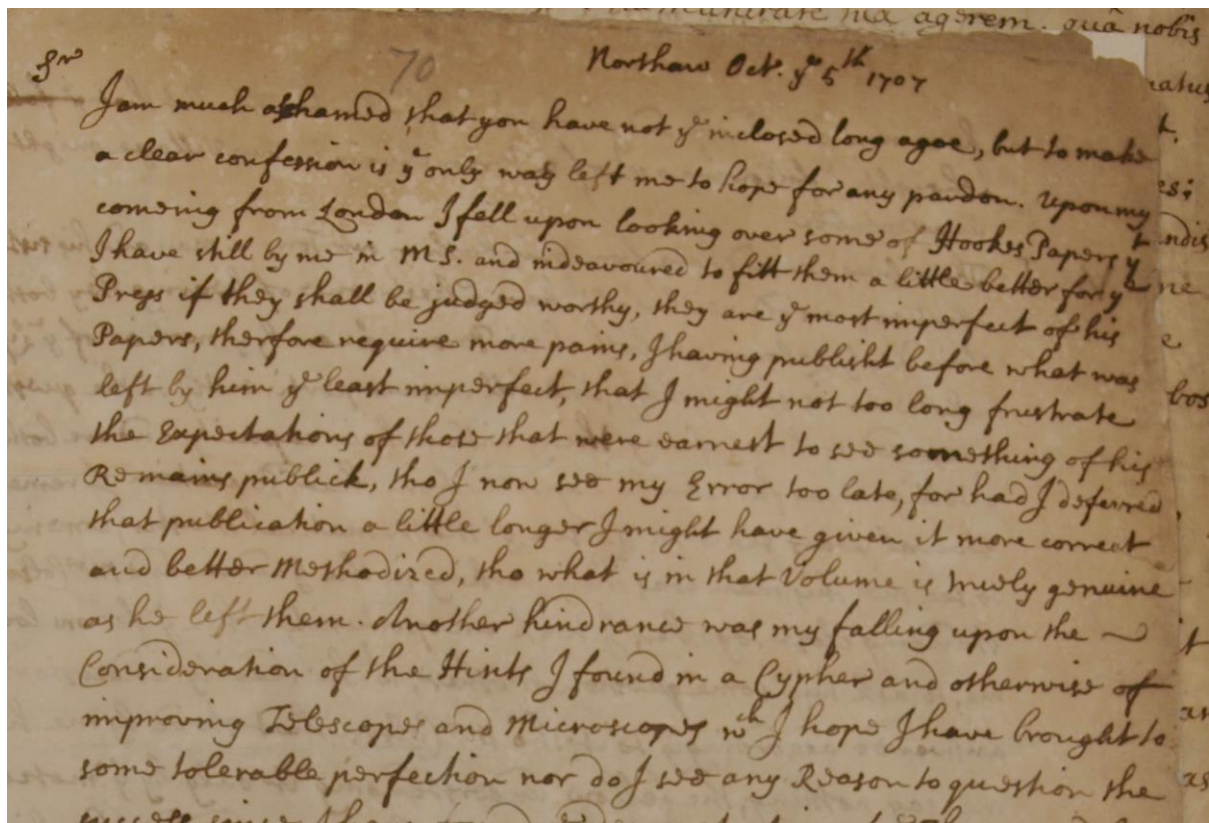 manitate ma agerem. quâ nobis
70
Northaw Oct. yᵉ 5ᵗʰ 1707
Sʳ
I am much ashamed that you have not yᵉ inclosed long agoe, but to make
a clear confession is yᵉ only way left me to hope for any pardon. Upon my
comeing from London I fell upon looking over some of Hookes Papers yᵗ
I have still by me in MS. and indeavoured to fitt them a little better for yᵉ
Press if they shall be judged worthy, they are yᵉ most imperfect of his
Papers, therfore require more pains, I having publisht before what was
left by him yᵉ least imperfect, that I might not too long frustrate
the Expectations of those that were earnest to see something of his
Remains publick, tho I now see my Error too late, for had I deferred
that publication a little longer I might have given it more correct
and better Methodized, tho what is in that Volume is truely genuine
as he left them. Another hindrance was my falling upon the
Consideration of the Hints I found in a Cypher and otherwise of
improving Telescopes and Microscopes wᶜʰ I hope I have brought to
some tolerable perfection nor do I see any Reason to question the